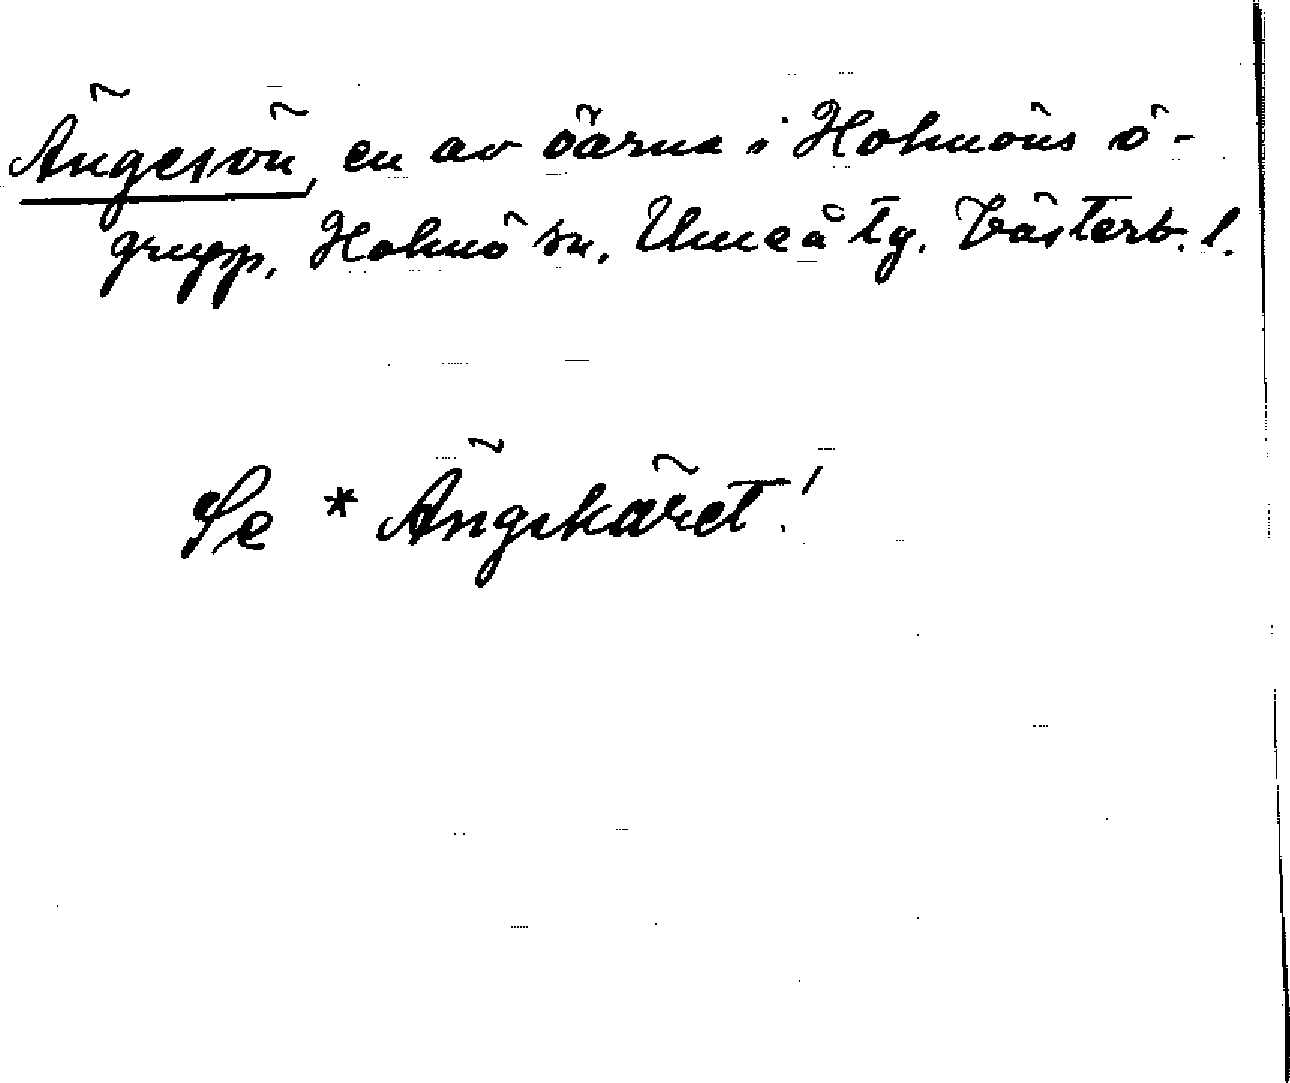 Ängesön, en av öarna i Holmöns ö-
grupp, Holmö sn, Umeå tg. Västerb. l.
Se * Ängskäret!